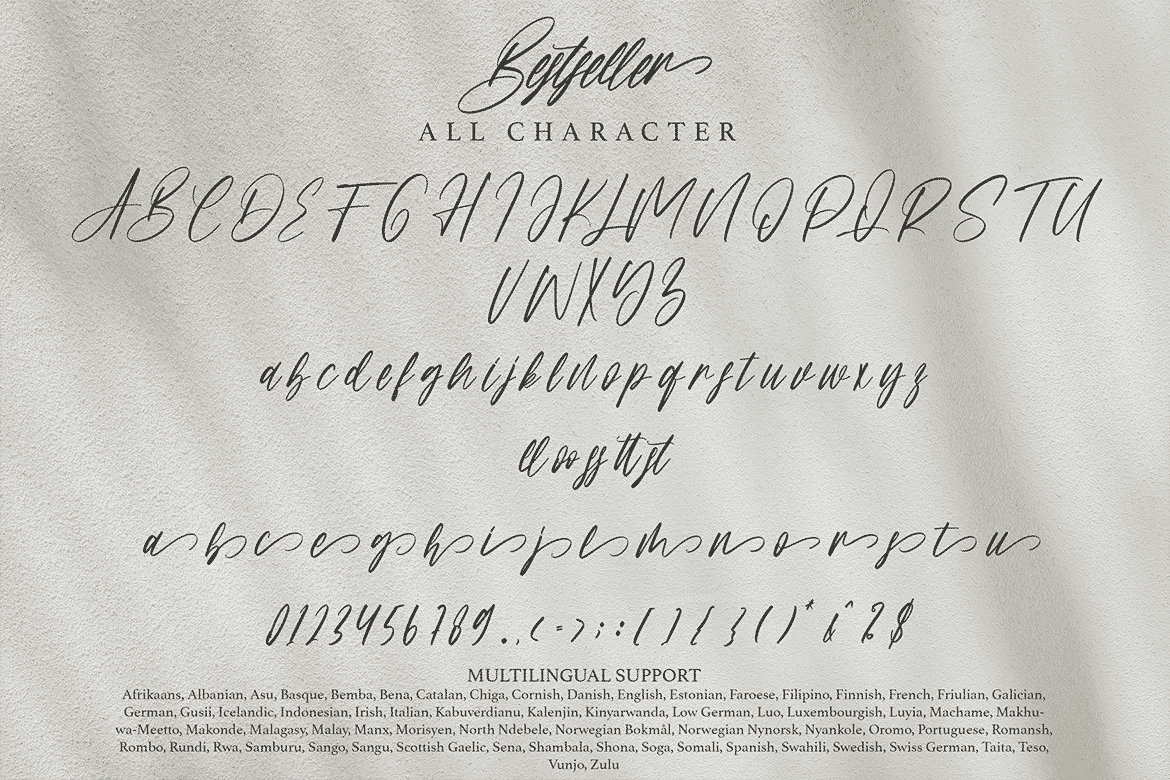 Bestseller
ALL CHARACTER
ABCDEFGHIJKLMNOPQRSTU
VWXYZ
abcdefghijklnopqrstuvwxyz
ll oo ss tt st
a b c e g h i j l m n o r s t u
0123456789.,<=>;:[]{}()*&^%$
MULTILINGUAL SUPPORT
Afrikaans, Albanian, Asu, Basque, Bemba, Bena, Catalan, Chiga, Cornish, Danish, English, Estonian, Faroese, Filipino, Finnish, French, Friulian, Galician,
German, Gusii, Icelandic, Indonesian, Irish, Italian, Kabuverdianu, Kalenjin, Kinyarwanda, Low German, Luo, Luxembourgish, Luyia, Machame, Makhu-
wa-Meetto, Makonde, Malagasy, Malay, Manx, Morisyen, North Ndebele, Norwegian Bokmål, Norwegian Nynorsk, Nyankole, Oromo, Portuguese, Romansh,
Rombo, Rundi, Rwa, Samburu, Sango, Sangu, Scottish Gaelic, Sena, Shambala, Shona, Soga, Somali, Spanish, Swahili, Swedish, Swiss German, Taita, Teso,
Vunjo, Zulu